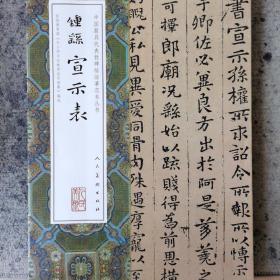 中国历代代表性碑帖临摹范本丛书
鍾繇 宣示表
人民美术出版社
書宣示孫權所求詔令所報所以博示
子卿佐必冀良方出於阿是芻蕘
可擇郎廟況繇始以疏賤得蒙恩
公私見異愛同骨肉殊遇厚寵以至